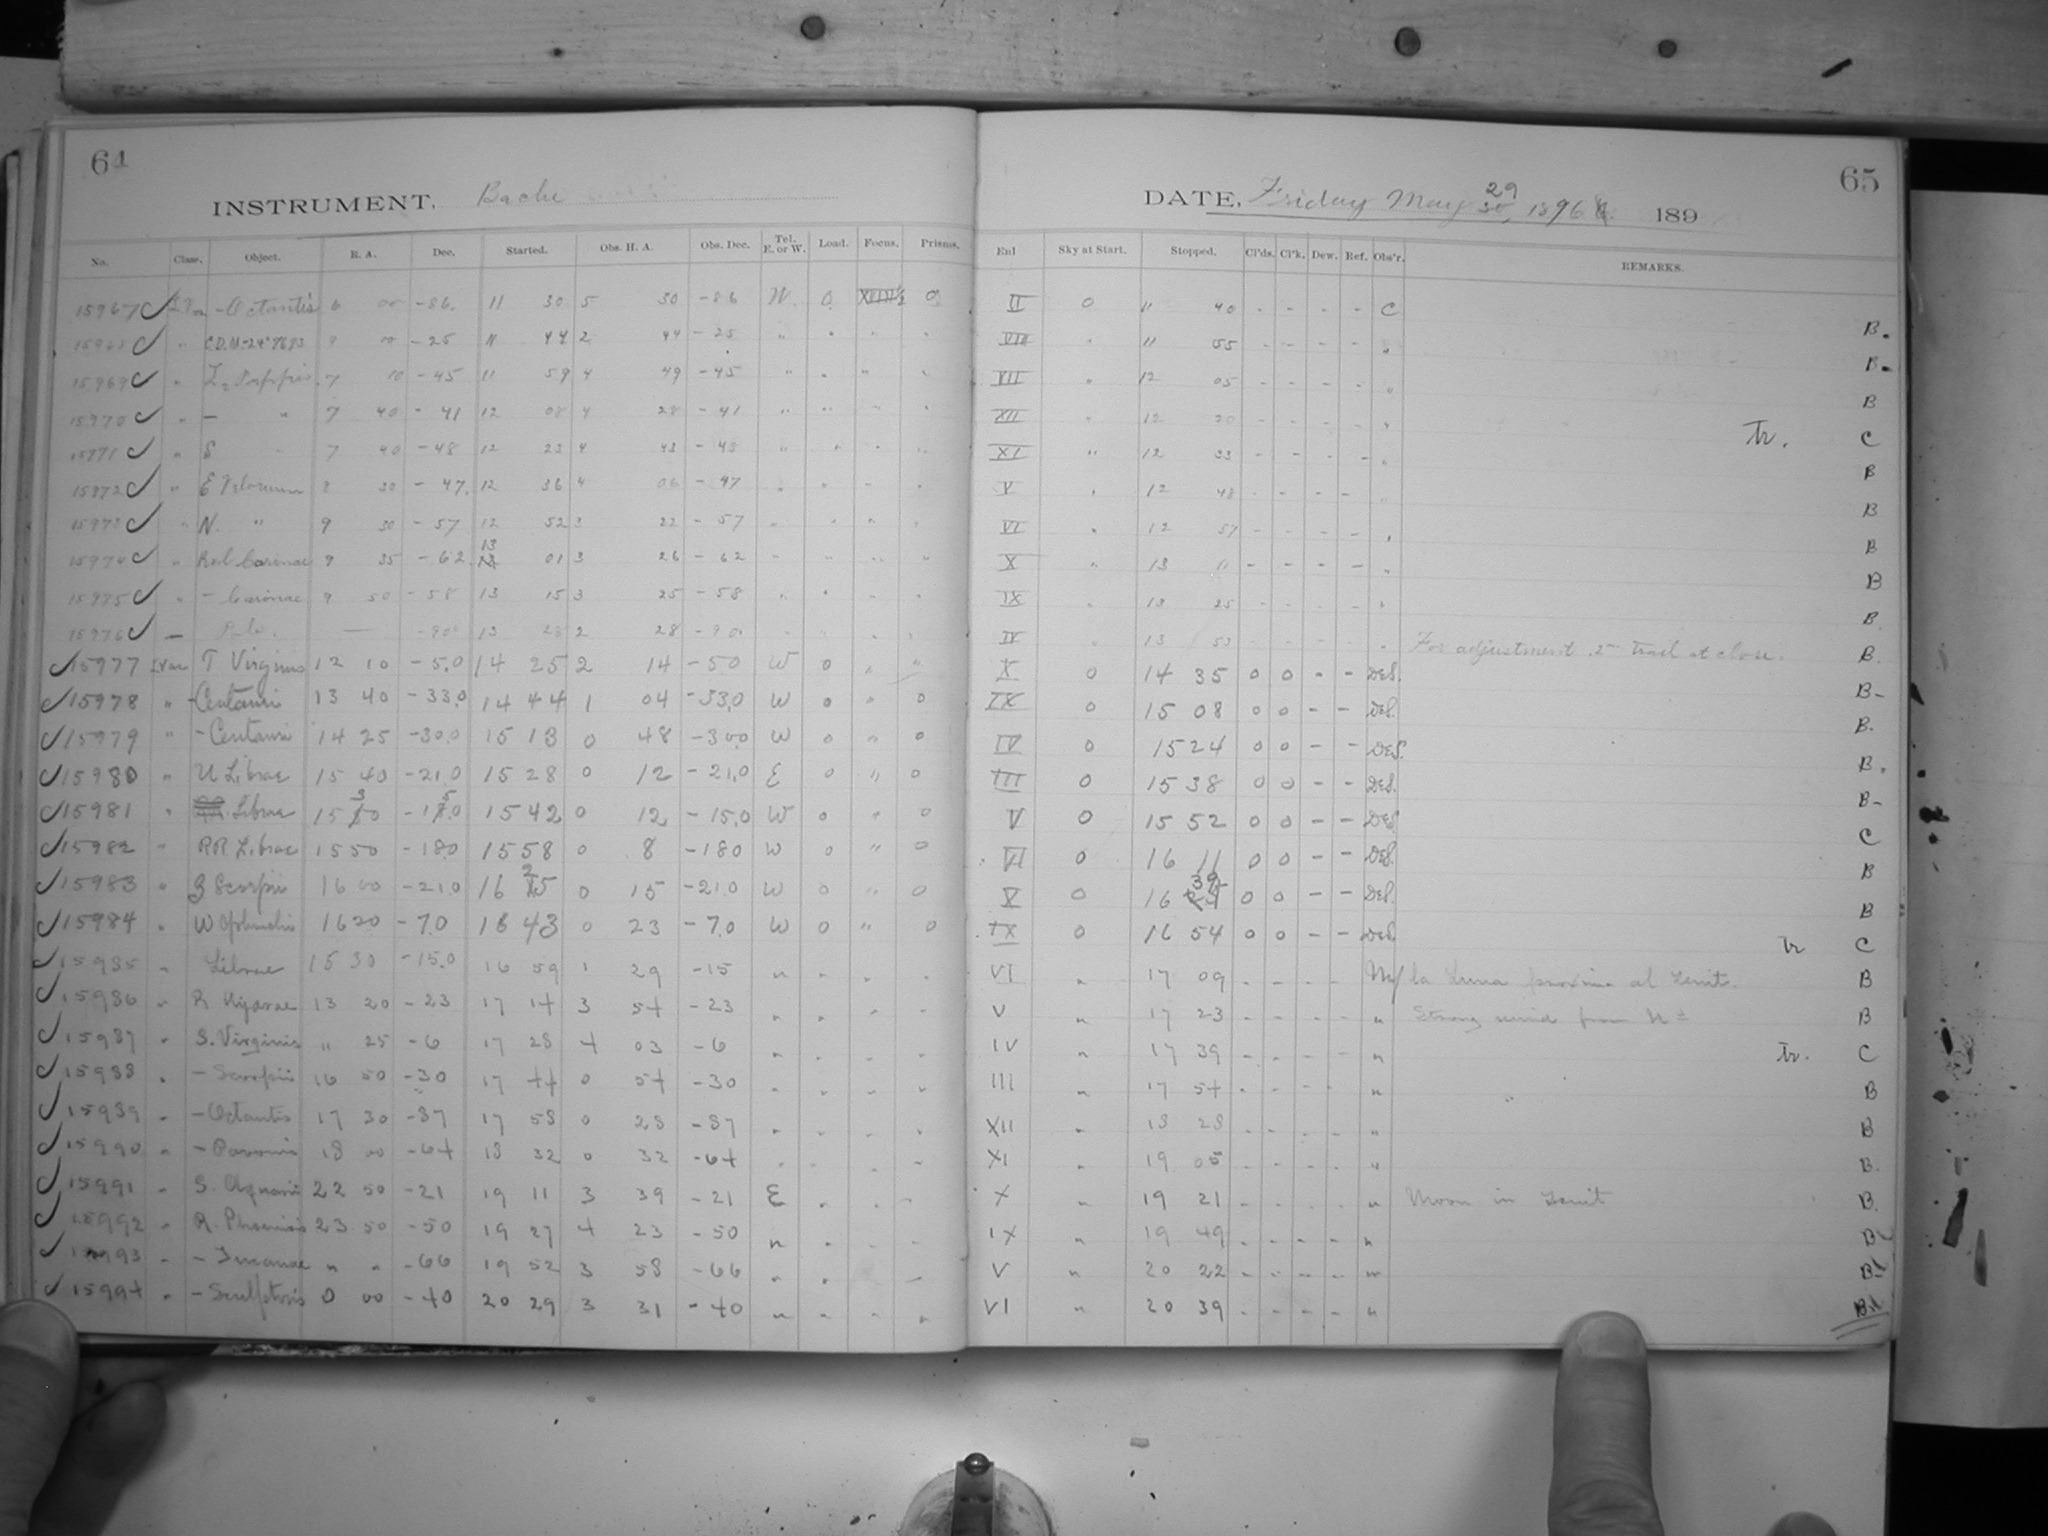 64
INSTRUMENT, Bache
No. Class. Object. R. A. Dec. Started. Obs. H. A. Obs. Dec. Tel. E. or W. Load. Focus. Prisms.
15967 - Octantis 6 00 -86. 11 30 5 30 -86 W. 0
C.D.M-24°7693 -25 11 44 2 44 -25
15969 " L2 Puppis 7 10 -45 11 59 4 49 -45 "
15970 " - " 7 40 -41 12 08 4 28 -41 " " "
15971 " S " 7 40 -48 12 23 4 43 -48
15972 " 8 30 -47. 12 36 4 06 -47
15973 " N. " 9 30 -57 12 52 3 22 -57
15974 " Carinae 9 35 -62 13 01 3 26 -62
15975 " - Carinae 9 50 -58 13 15 3 25 -58
15976 — Pole. — -90° 13 28 2 28 -90.
15977 I Var T Virginis 12 10 -5.0 14 25 2 14 -50 W 0 " "
15978 " -Centauri 13 40 -33.0 14 44 1 04 -33.0 W 0 " 0
15979 " -Centauri 14 25 -30.0 15 13 0 48 -30.0 W 0 " 0
15980 " U Librae 15 40 -21.0 15 28 0 12 -21.0 E 0 " 0
15981 " Librae 15 30 -15.0 15 42 0 12 -15.0 W 0 " 0
15982 " RR Librae 15 50 -180 15 58 0 8 -180 W 0 " 0
15983 " S Scorpii 16 00 -21.0 16 25 0 15 -21.0 W 0 " 0
15984 " W Ophiuchi 16 20 -7.0 16 43 0 23 -7.0 W 0 " 0
15985 " Librae 15 30 -15.0 16 59 1 29 -15 "
15986 " R Hydrae 13 20 -23 17 14 3 54 -23 "
15987 " S. Virginis " 25 -6 17 28 4 03 -6 "
15988 " - Scorpii 16 50 -30 17 44 0 54 -30 "
15989 " - Octantis 17 30 -87 17 58 0 28 -87 "
15990 " - Pavonis 18 00 -64 18 32 0 32 -64 "
15991 " S. Aquarii 22 50 -21 19 11 3 39 -21 E
15992 " R. Phoenicis 23 50 -50 19 27 4 23 -50 "
15993 " - Tucanae " " -66 19 52 3 58 -66 "
15994 " - Sculptoris 0 00 -40 20 29 3 31 -40 "
65
DATE, Friday May 29 30, 1896 189
Enl Sky at Start. Stopped. Cl'ds. Cl'k. Dew. Ref. Obs'r. REMARKS.
II 0 11 40 - - - - C B.
VIII " 11 55 - - - - " B.
VII " 12 05 - - - - " B
XII " 12 20 - - - - " Tr. C
XI " 12 33 - - - - " B
V " 12 48 - - - - " B
VI " 12 57 - - - - " B
X " 13 11 - - - - " B
IX " 13 25 - - - - " B.
IV " 13 53 - - - - " For adjustment. trail at close. B.
X 0 14 35 0 0 - - DES. B-
IX 0 15 08 0 0 - - DES. B.
IV 0 15 24 0 0 - - DES. B.
III 0 15 38 0 0 - - DES. B-
V 0 15 52 0 0 - - DES C
VI 0 16 11 0 0 - - DES. B
X 0 16 39 0 0 - - DES. B
IX 0 16 54 0 0 - - DES Tr C
VI " 17 09 - - - - la luna proxima al Zenit. B
V " 17 23 - - - - " Strong wind from B
IV " 17 39 - - - - " Tr. C
III " 17 54 - - - - " B
XII " 18 28 - - - - " B
XI " 19 05 - - - - " B.
X " 19 21 - - - - " Moon in Zenit B.
IX " 19 49 - - - - " B
V " 20 22 - - - - " B
VI " 20 39 - - - - " B